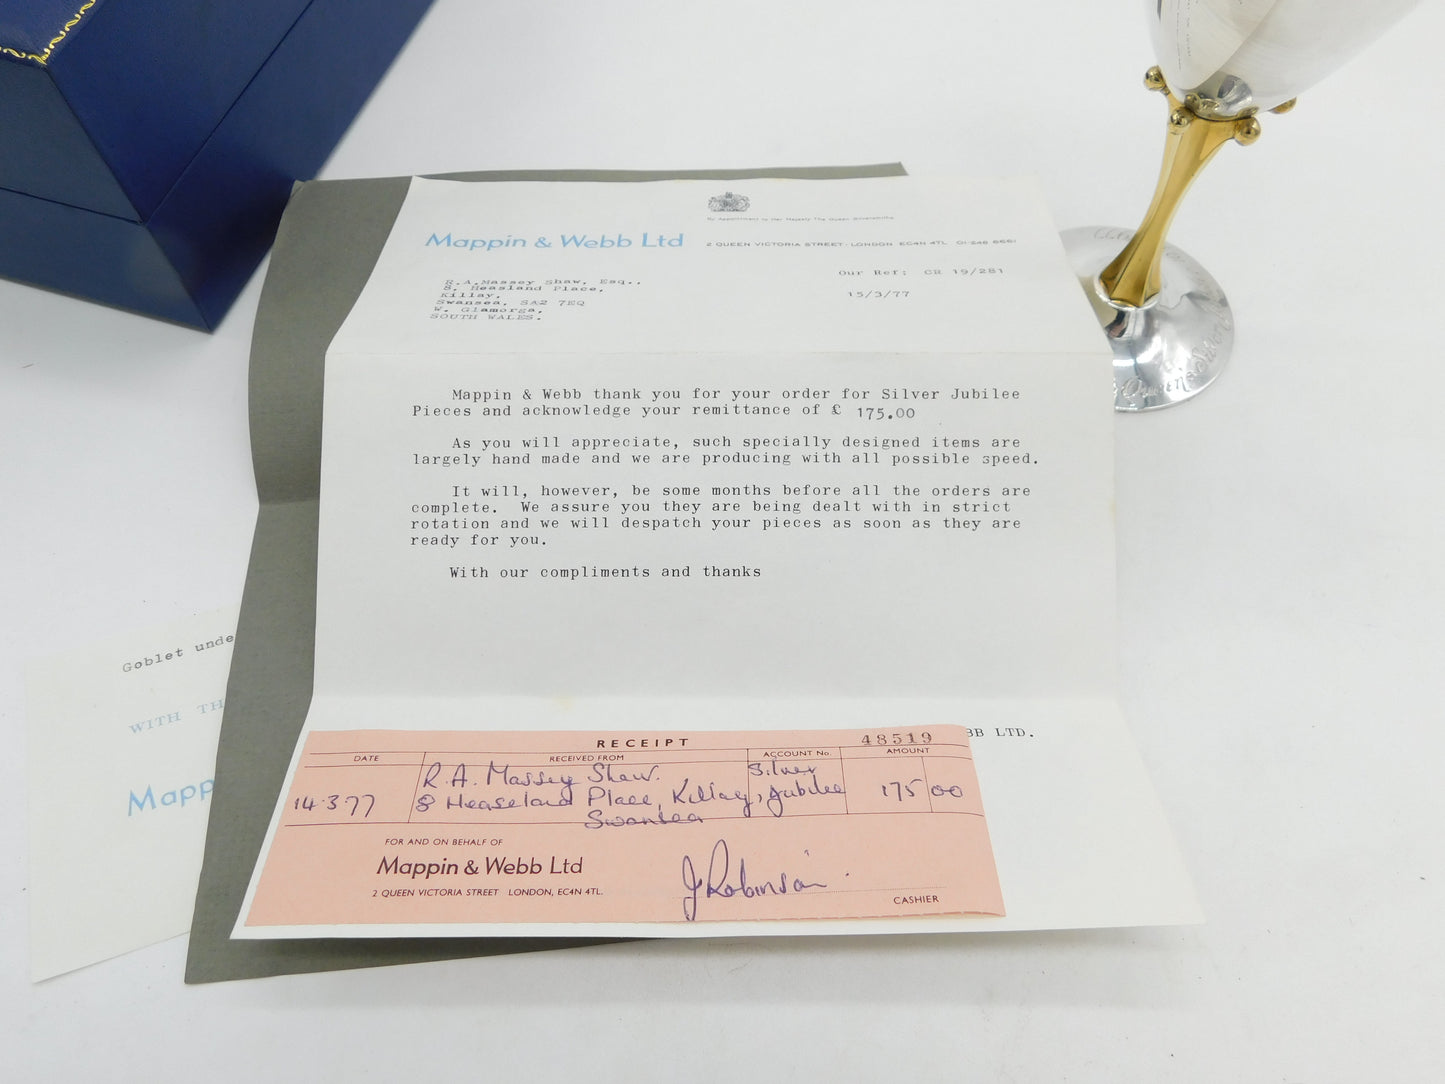 By Appointment to Her Majesty The Queen Silversmiths
Mappin & Webb Ltd
2 QUEEN VICTORIA STREET · LONDON EC4N 4TL 01-248 6661
Our Ref: CR 19/281
15/3/77
R.A.Massey Shaw, Esq.,
8, Heasland Place,
Killay,
Swansea, SA2 7EQ
W. Glamorga,
SOUTH WALES.
Mappin & Webb thank you for your order for Silver Jubilee
Pieces and acknowledge your remittance of £ 175.00
As you will appreciate, such specially designed items are
largely hand made and we are producing with all possible speed.
It will, however, be some months before all the orders are
complete. We assure you they are being dealt with in strict
rotation and we will despatch your pieces as soon as they are
ready for you.
With our compliments and thanks
BB LTD.
RECEIPT
48519
DATE
RECEIVED FROM
ACCOUNT No.
AMOUNT
14.3.77
R.A. Massey Shaw.
8 Heaseland Place, Killay,
Swansea
Silver
Jubilee
175 00
FOR AND ON BEHALF OF
Mappin & Webb Ltd
2 QUEEN VICTORIA STREET LONDON, EC4N 4TL.
J Robinson
CASHIER
Goblet unde
WITH TH
Mapp
Queen's Silver